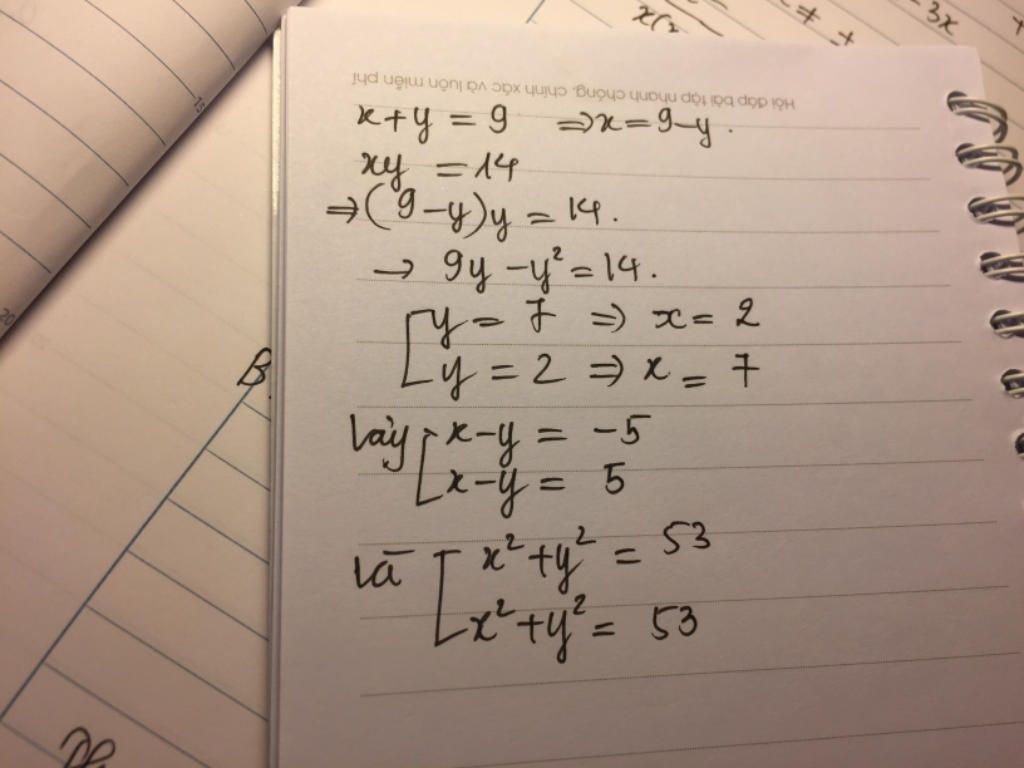 Hỏi đáp bài tập nhanh chóng, chính xác và luôn miễn phí
x+y = 9 ⇒x=9-y.
xy = 14
⇒(9-y)y = 14.
→ 9y-y² = 14.
[y = 7 ⇒ x = 2
[y = 2 ⇒ x = 7
Vậy [x-y = -5
[x-y = 5
và [x²+y² = 53
[x²+y² = 53
B
15
20
- 3x